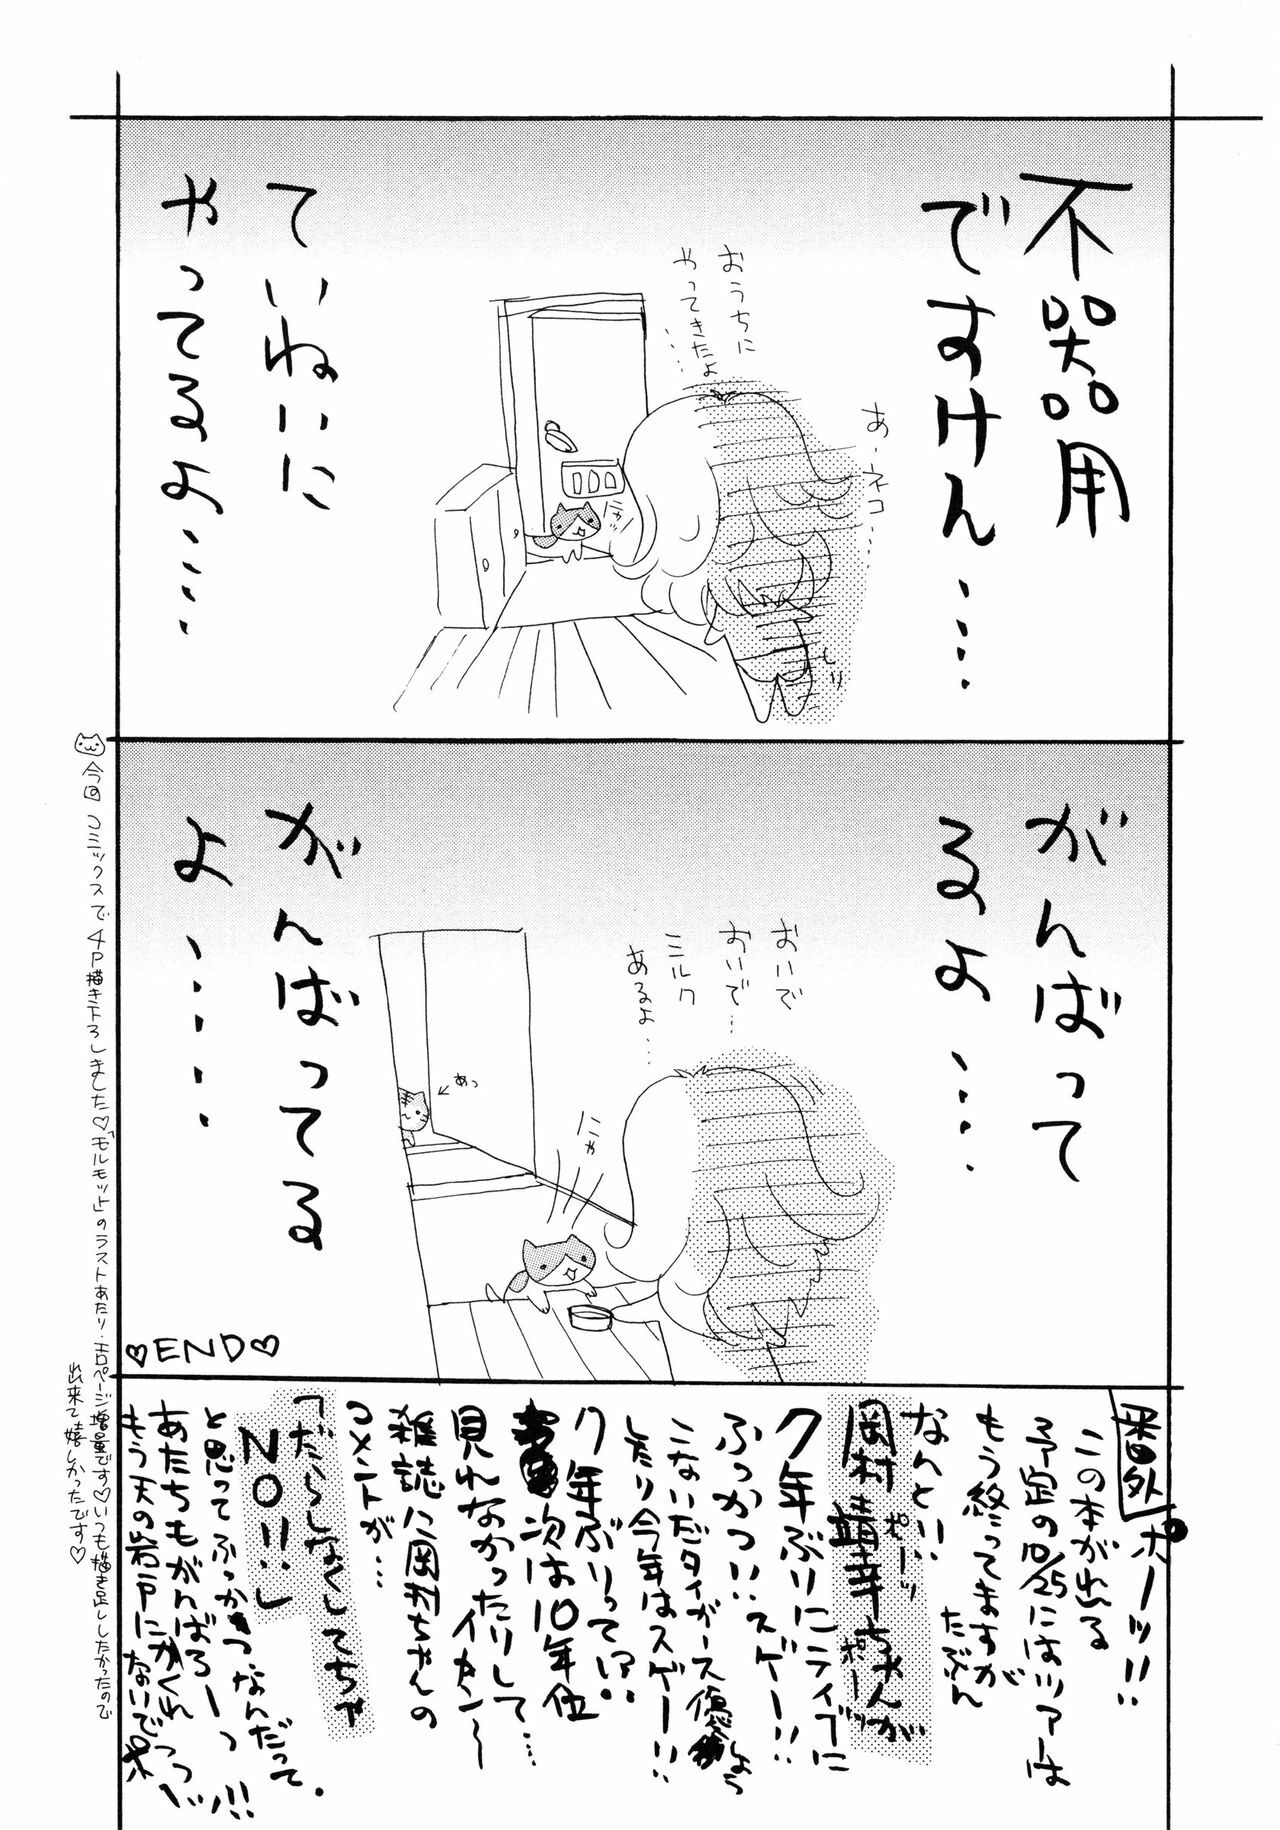 不器用
ですけん……
おうちに
やってきたよ……
あ、ネコ……
にゃ
ていねいに
やってるよ……
がんばって
るよ……
おいで
おいで…
ミルク
あるよ…
にゃー
あっ
がんばってる
よ……
♡END♡
番外ポーッ!!
この本が出る
予定の10/25にはツアーは
もう終ってますが
たぶん
なんと!!
岡村靖幸ちゃんが
ポーッ
ポーッ
7年ぶりにライブに
ふっかつ!!スゲー!!
こないだタイガース優勝
したり今年はスゲー!!
7年ぶりって!?
次は10年位
見れなかったりして…
イカン〜
雑誌に岡村ちゃんの
コメントが…
「だらしなくしてちゃ
NO!!」
と思ってふっかつなんだって。
あたちもがんばろーっ!!!
もう天の岩戸にかくれ
ないで
今回コミックスで4P描き下ろしました♡「モルモット」のラストあたり・エロページ増量です♡いつも描き足ししたかったので
出来て嬉しかったです♡